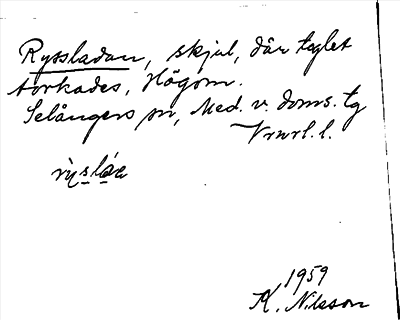 Ryssladan, skjul, där teglet
torkades, Högom.
Selångers sn, Med. v. doms. tg
Vrnrl. l.
1959
K. Nilsson